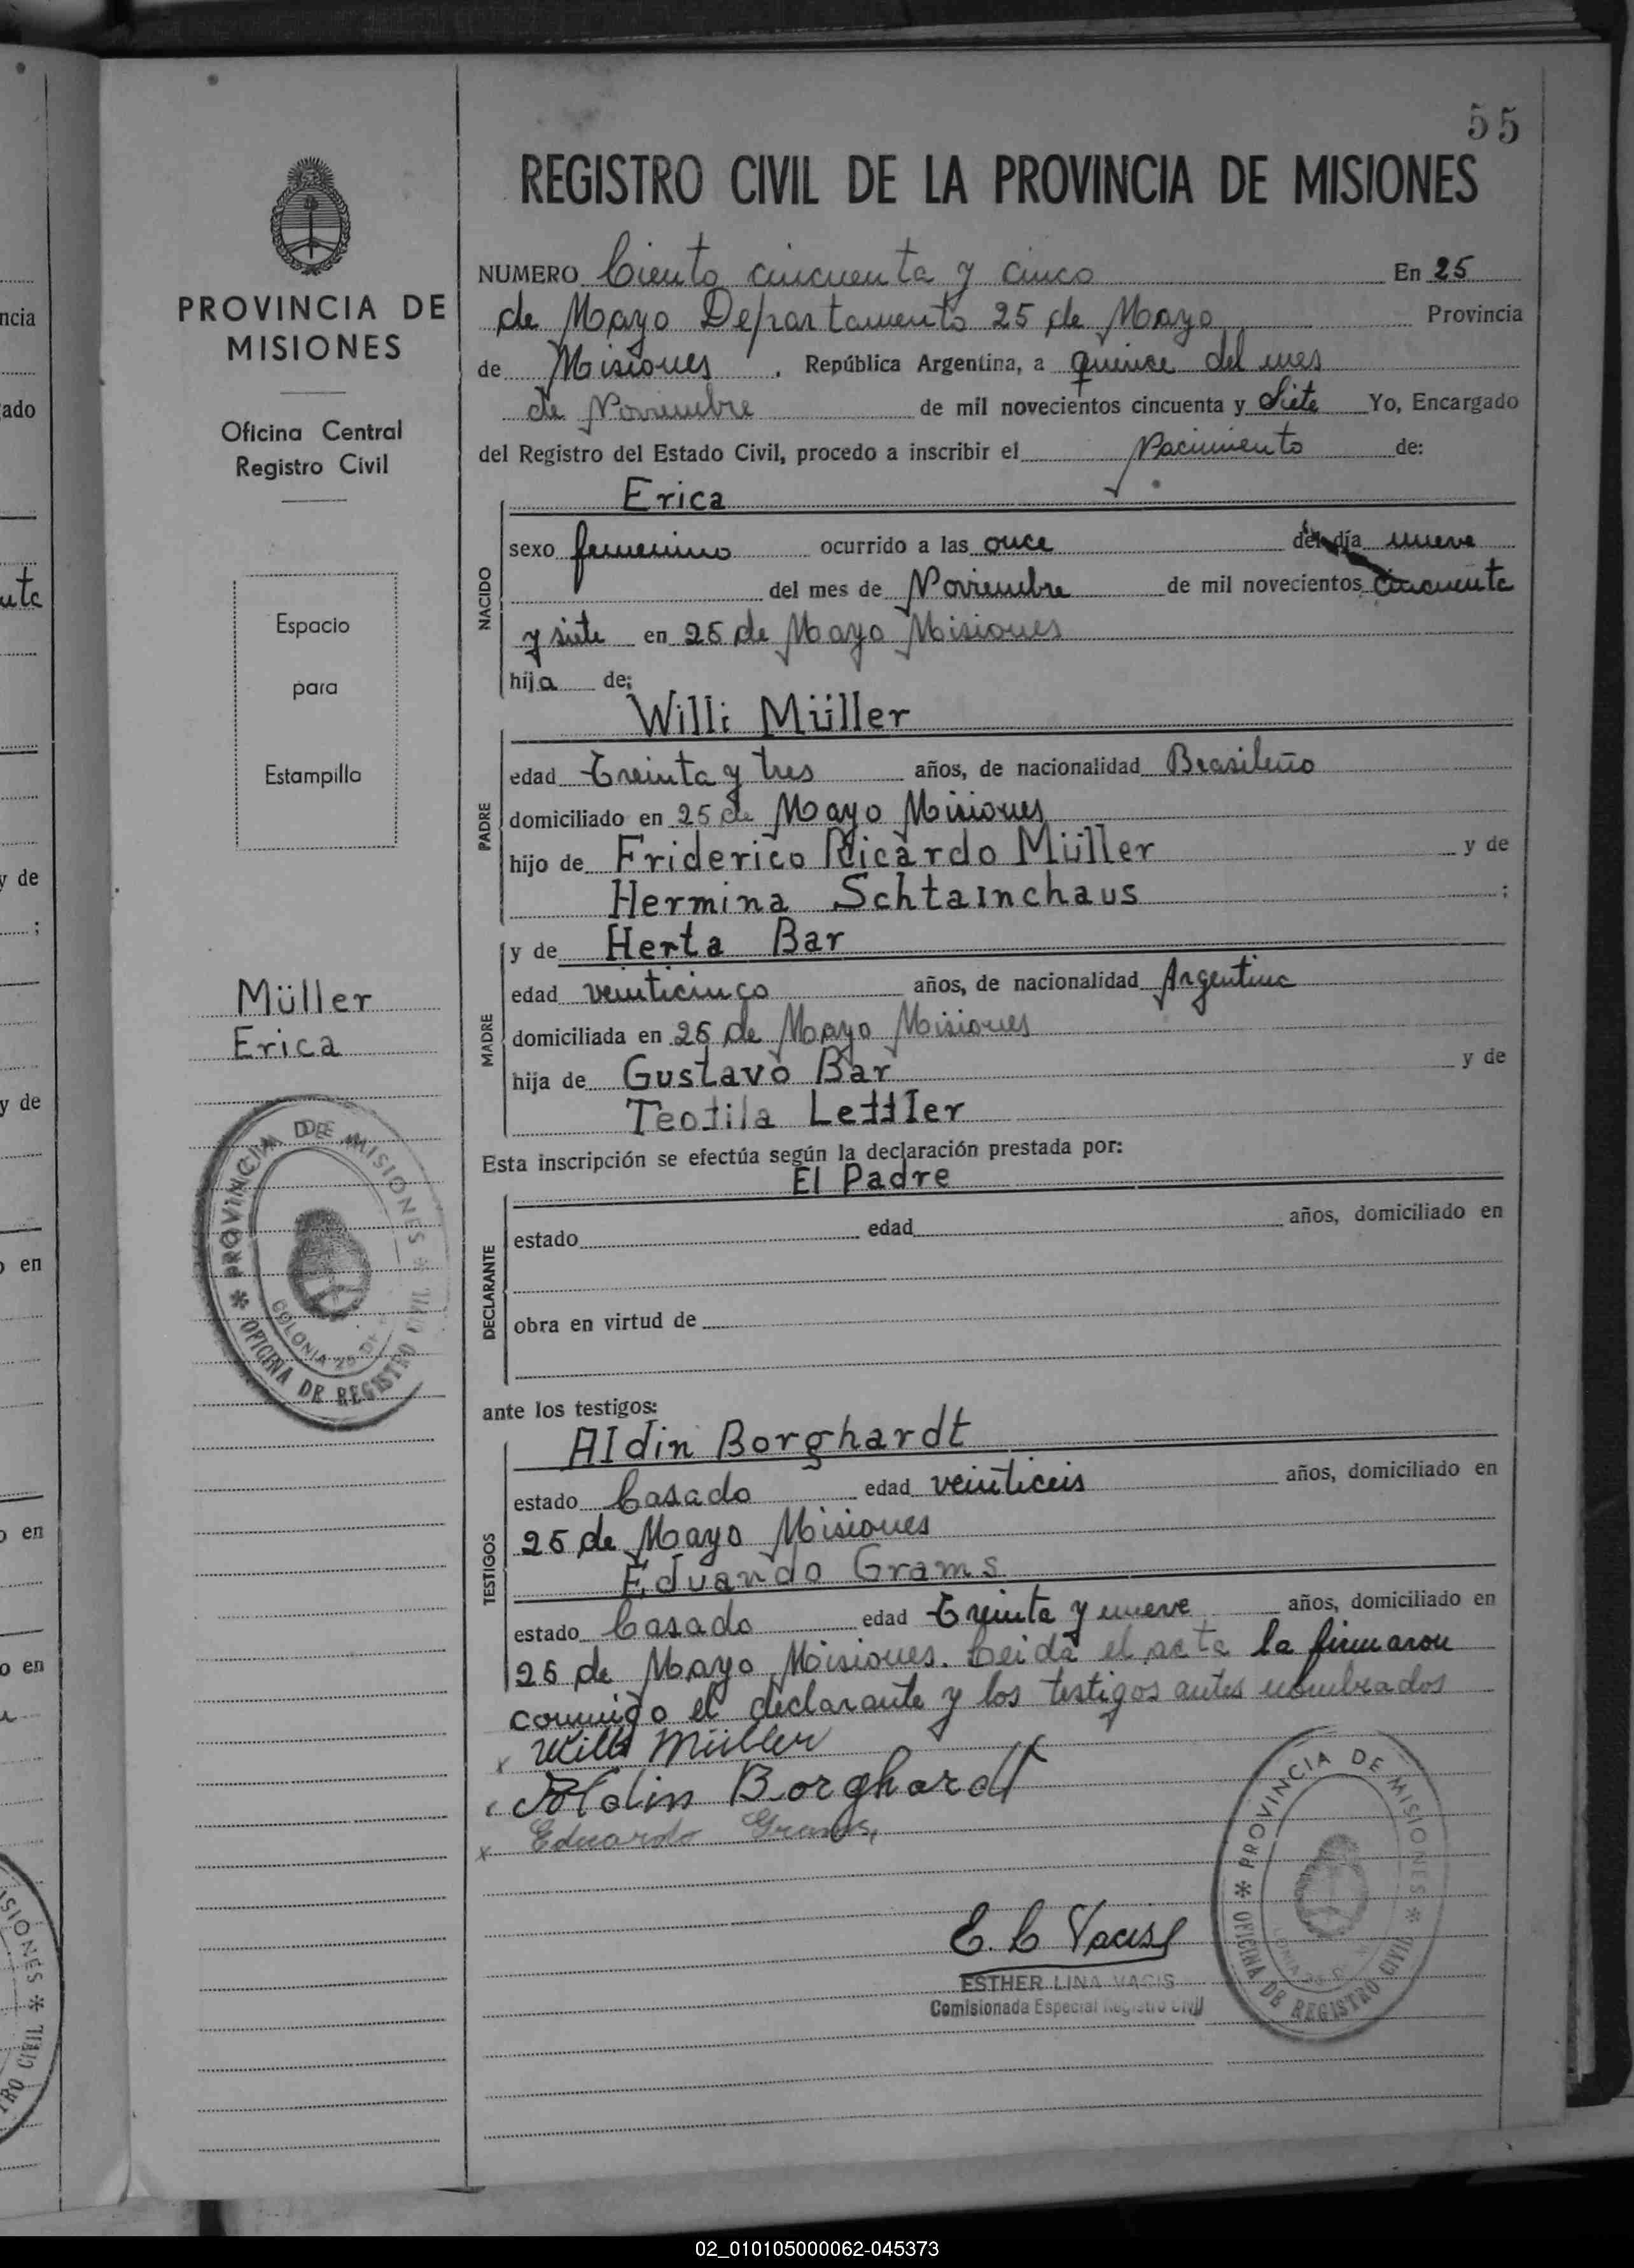 55
REGISTRO CIVIL DE LA PROVINCIA DE MISIONES
PROVINCIA DE
MISIONES
Oficina Central
Registro Civil
Espacio
para
Estampilla
Müller
Erica
PROVINCIA DE MISIONES * OFICINA DE REGISTRO CIVIL *
COLONIA 25 DE
NUMERO Ciento cincuenta y cinco En 25
de Mayo Departamento 25 de Mayo Provincia
de Misiones, República Argentina, a quince del mes
de Noviembre de mil novecientos cincuenta y Siete Yo, Encargado
del Registro del Estado Civil, procedo a inscribir el Nacimiento de:
NACIDO
Erica
sexo femenino ocurrido a las once del día nueve
del mes de Noviembre de mil novecientos cincuenta
y siete en 25 de Mayo Misiones
hija de:
PADRE
Willi Müller
edad Treinta y tres años, de nacionalidad Brasileño
domiciliado en 25 de Mayo Misiones
hijo de Friderico Ricardo Müller y de
Hermina Schtainchaus ;
MADRE
y de Herta Bar
edad veinticinco años, de nacionalidad Argentina
domiciliada en 25 de Mayo Misiones
hija de Gustavo Bar y de
Teofila Lettler
Esta inscripción se efectúa según la declaración prestada por:
El Padre
DECLARANTE
estado edad años, domiciliado en
obra en virtud de
ante los testigos:
TESTIGOS
Aldin Borghardt
estado Casado edad veinticeis años, domiciliado en
25 de Mayo Misiones
Eduando Grams
estado Casado edad Treinta y nueve años, domiciliado en
25 de Mayo Misiones. Leida el acta la firmaron
conmigo el declarante y los testigos antes nombrados
x Willi Müller
Aldin Borghardt
x Eduardo Grams
E. L Vacis
ESTHER LINA VACIS
Comisionada Especial Registro Civil
PROVINCIA DE MISIONES * OFICINA DE REGISTRO CIVIL *
ncia
ado
y de
;
y de
en
en
o en
02_010105000062-045373